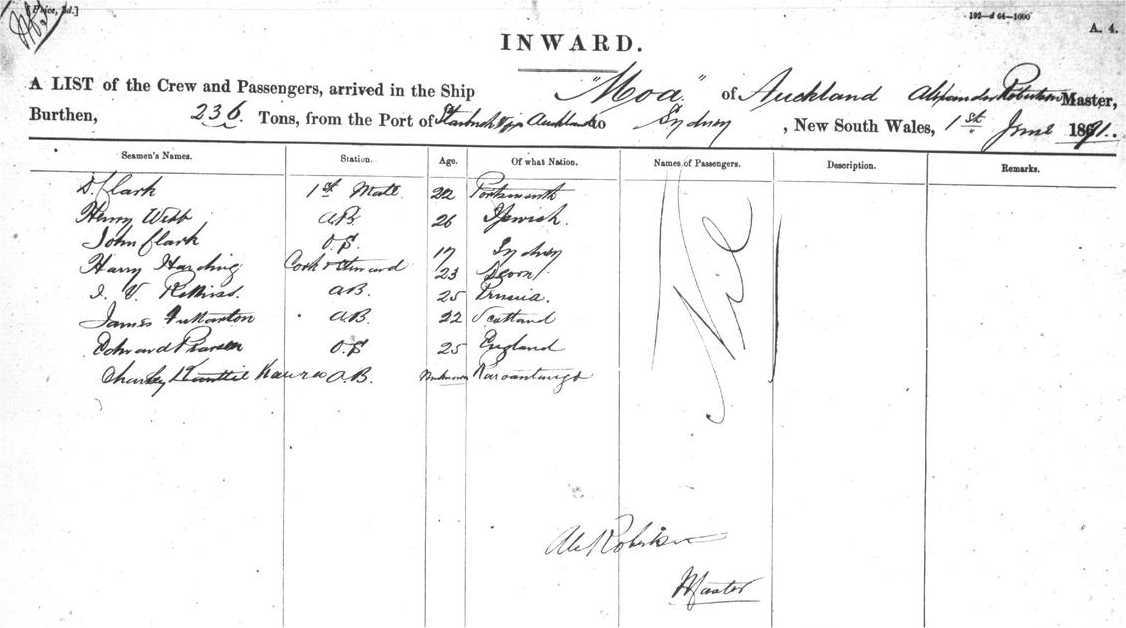 [Price, 3d.]
192—d 64—1000
A. 4.
INWARD.
A LIST of the Crew and Passengers, arrived in the Ship "Moa" of Auckland Alexander Robertson Master,
Burthen, 236 Tons, from the Port of Auckland to Sydney, New South Wales, 1st June 1871.
Seamen's Names. Station. Age. Of what Nation. Names of Passengers. Description. Remarks.
D. Clark 1st Mate 22 Portsmouth Nil
Henry Webb A.B. 26 Ipswich.
John Clark O.S 17 Sydney
Harry Harding Cook & Steward 23 Devon
A.B. 25 Prussia.
James Fullarton A.B. 22 Scotland
Edward Pearson O.S 25 England
Charley A.B. Unknown
Alex Robertson
Master